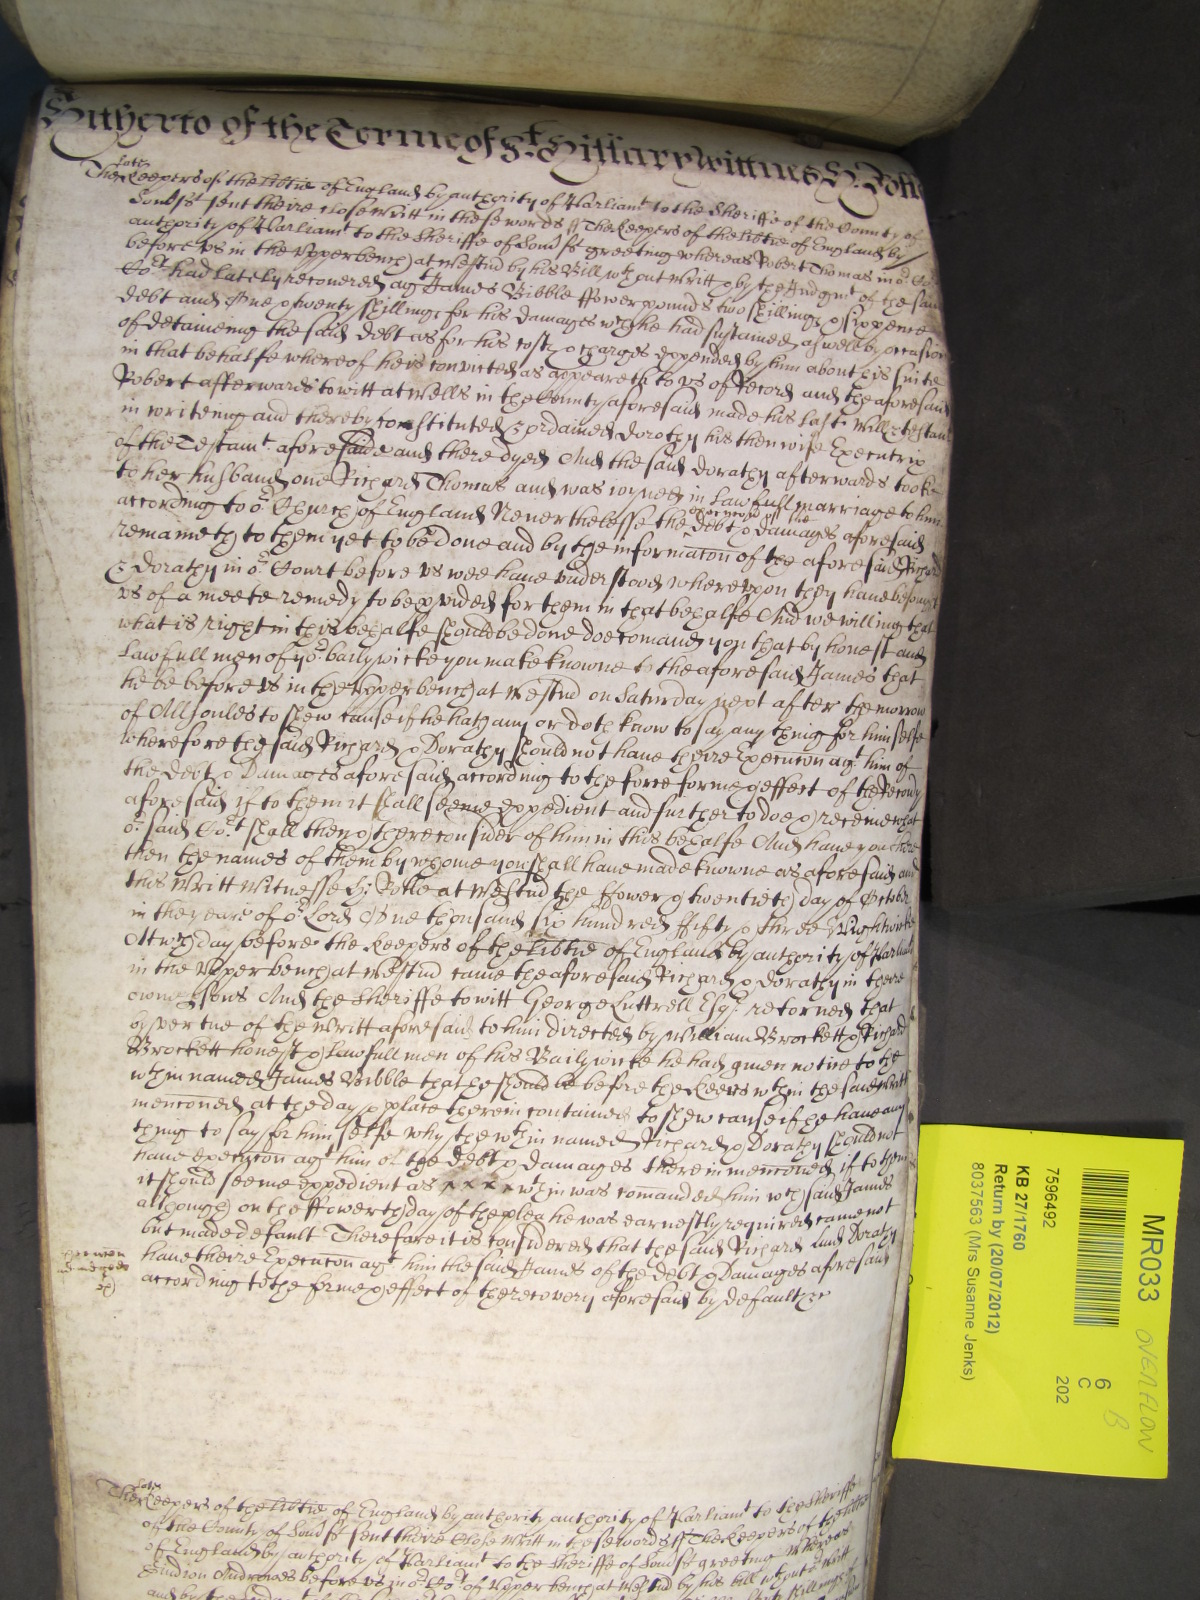 Hitherto of the Terme of St. Hillary Wittnes H: Rolle
late
The Keepers of the libtie of England by authority of Parliamt to the Sheriffe of the County of
Somst sent theire close writt in these words ss The Keepers of the libtie of England by
authority of Parliamt to the Sheriffe of Somst greeting whereas Robert Thomas in or Cort
before us in the Upper bench at Westmd by his Bill wthout writt & by the Judgmt of the same
Cort had lately recovered agt James Bibble ffower pounds two shillings & sixpence
debt and One & twenty shillings for his damages wch he had sustained aswell by occasion
of detaineing the said debt as for his costs & charges expended by him about his suite
in that behalfe whereof he is convicted as appeareth to us of Record and the aforesaid
Robert afterwards to witt at Wells in the County aforesaid made his last Will & testamt
in writeing and thereby constituted & ordained Dorothy his then wife Executrix
of the Testamt aforesaid and there dyed And the said Dorathy afterwards tooke
to her husband one Richard Thomas and was ioyned in lawfull marriage to him
according to or Church of England Neverthelesse the debt & damages aforesaid
execucon of the
remaineth to them yet to be done and by the informacon of the aforesaid Richard
& Dorathy in or Court before us wee have understood whereupon they have besought
us of a meete remedy to be pvided for them in that behalfe And we willing that
what is right in this behalfe should be done doe comand you that by honest and
lawfull men of yor bailywicke you make knowne to the aforesaid James that
he be before us in the Upper bench at Westmd on Saturday next after the morrow
of All soules to shew cause if he hath any or doth know to say any thing for himselfe
wherefore the said Richard & Dorathy should not have theire Execucon agt him of
the debt & Damages aforesaid according to the force forme & effect of the Recovy
aforesaid if to them it shall seeme expedient and further to doe & receive what
or said Cort shall then & there consider of him in this behalfe And have you there
then the names of them by whome you shall have made knowne as aforesaid and
this Writt Witnesse H: Rolle at Westmd the ffower & twentieth day of October
in the yeare of or Lord One thousand six hundred fifty & three Wightwicke
Att wch day before the Keepers of the libtie of England by authority of Parliamt
in the Upper bench at Westmd came the aforesaid Richard & Dorathy in theire
owne psons And the Sheriffe to witt George Luttrell Esqr. retorned that
by vertue of the writt aforesaid to him directed by William Brockett & Richard
Brockett honest & lawfull men of his Bailywicke he had given notice to the
wthin named James Bibble that he should be before the Keeps wthin the said writt
menconed at the day & place therein contained to shew cause if he have any
thing to say for himselfe why the wthin named Richard & Dorathy should not
have execucon agt him of the debt & damages therein menconed if to them
it should seeme expedient as x x x x wthin was comanded him wch said James
although on the ffowerth day of the plea he was earnestly required came not
but made default Therefore it is considered that the said Richard and Dorathy
have theire Execucon agt him the said James of the debt & Damages aforesaid
according to the forme & effect of the recovery aforesaid by default &c
late
The Keepers of the libtie of England by authority authority of Parliamt to the Sheriffe
of the County of Somst sent theire Close writt in these words ss The Keepers of the libtie
of England by authority of Parliamt to the Sheriffe of Somst greeting Whereas
Andrewes before us in or Cort of Upper bench at Westmd by his bill wthout writt
and by the
MR033
OVERFLOW
B
6
C
202
7596492
KB 27/1760
Return by (20/07/2012)
8037563 (Mrs Susanne Jenks)